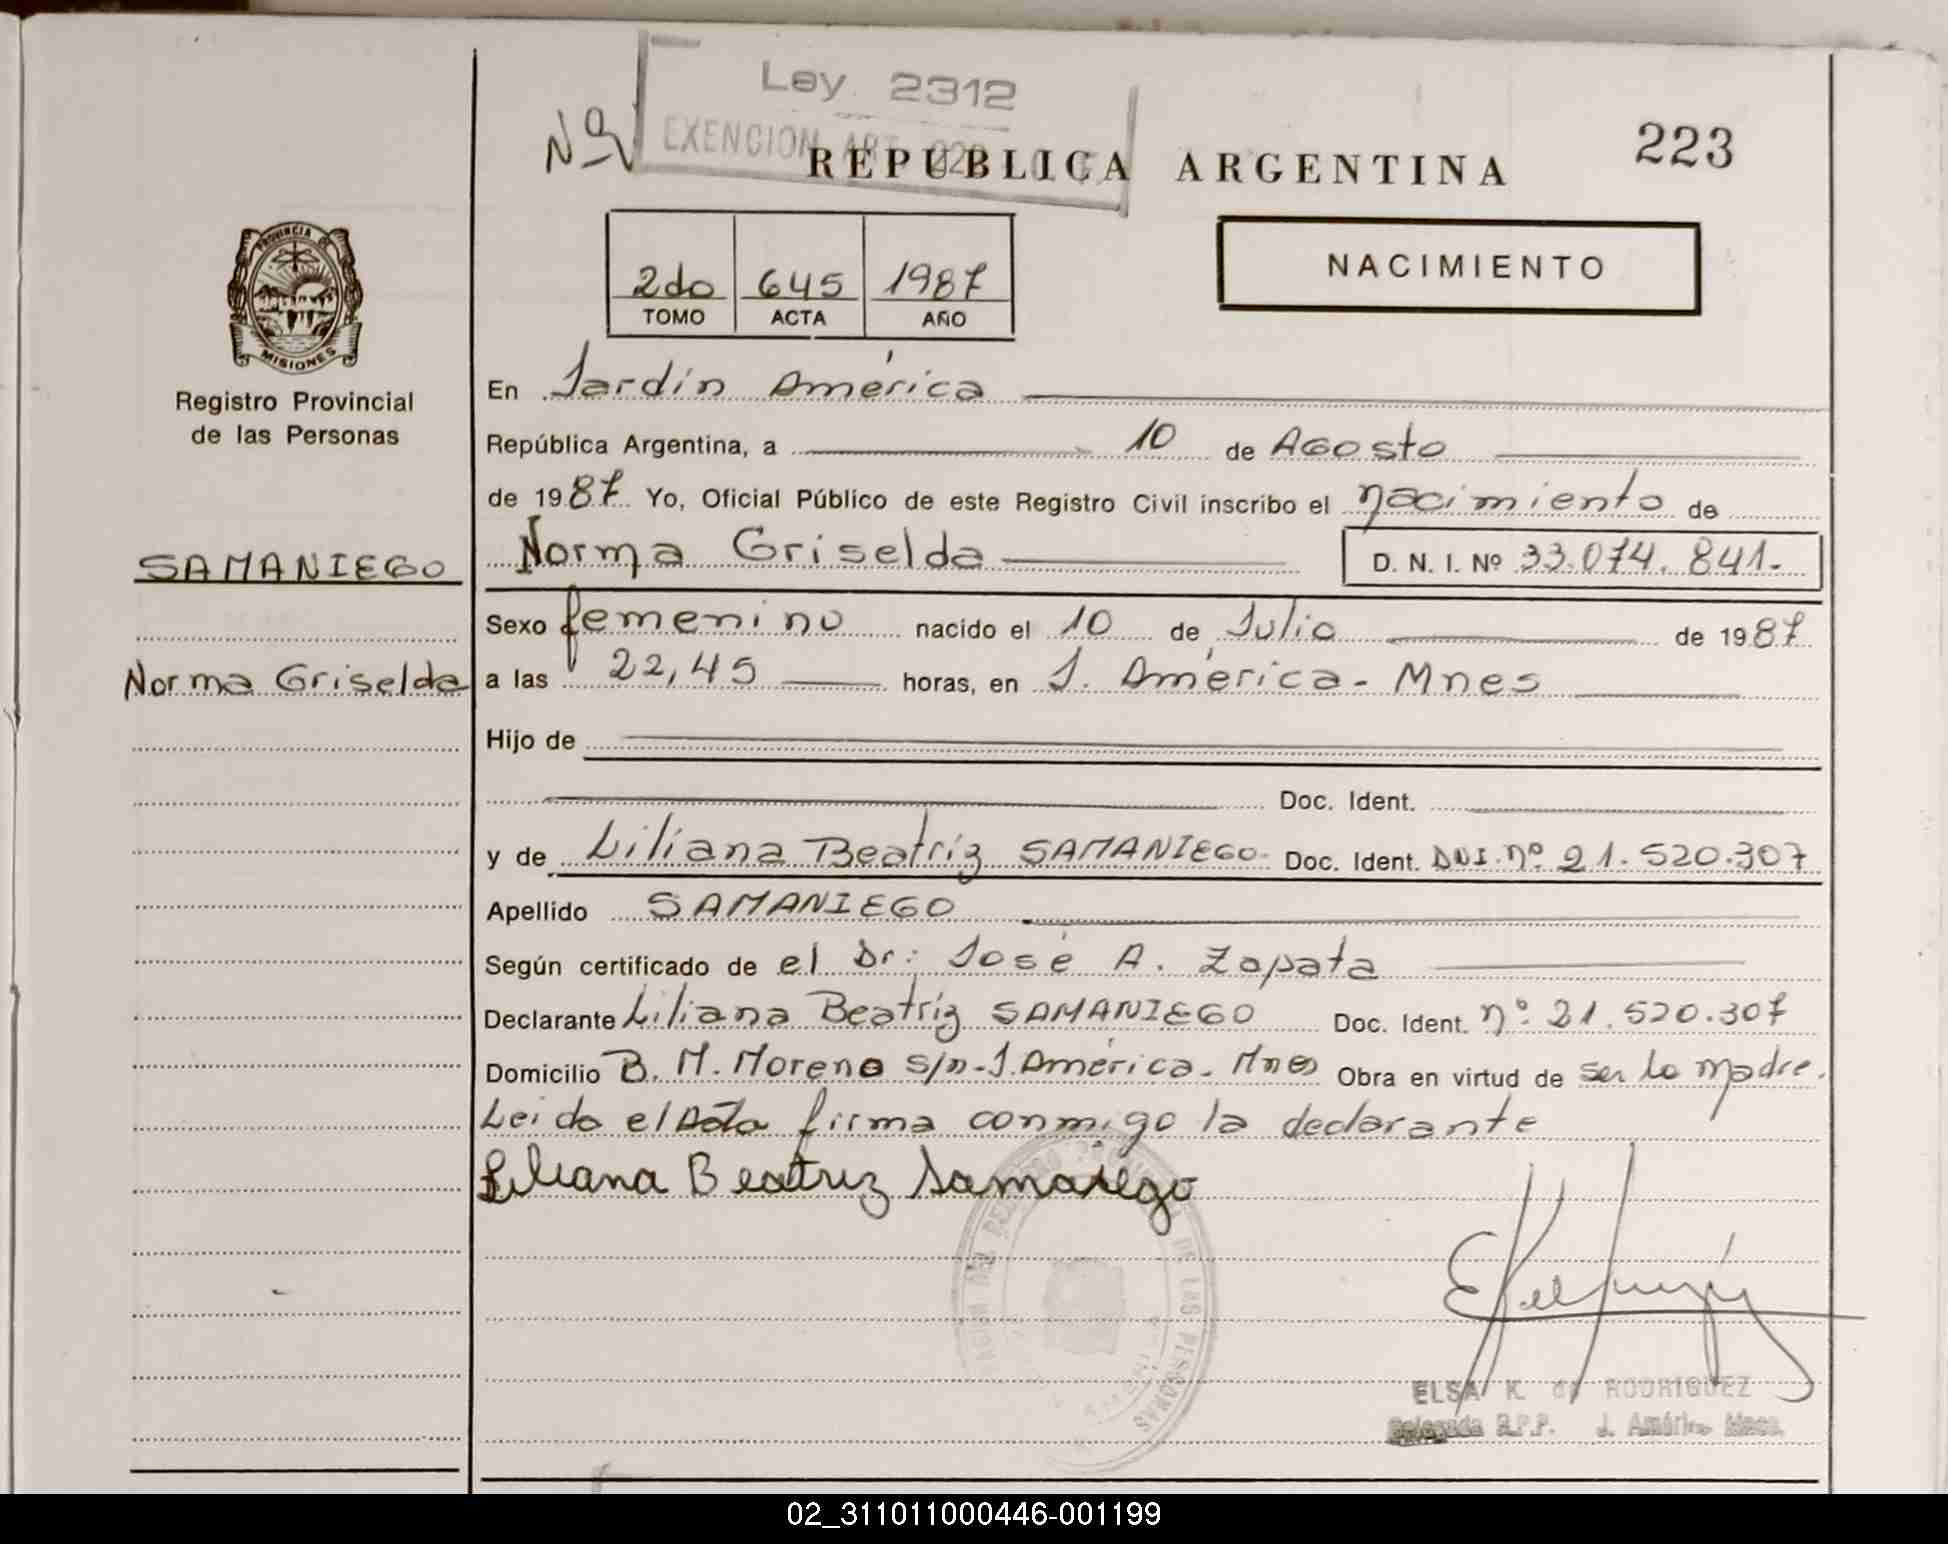 Ley 2312
EXENCION ART. 229
Nº
REPUBLICA ARGENTINA
223
2do 645 1987
TOMO ACTA AÑO
NACIMIENTO
PROVINCIA DE
MISIONES
Registro Provincial
de las Personas
En Jardín América
República Argentina, a 10 de Agosto
de 1987 Yo, Oficial Público de este Registro Civil inscribo el nacimiento de
SAMANIEGO
Norma Griselda D. N. I. Nº 33.074.841.-
Sexo femenino nacido el 10 de Julio de 1987
Norma Griselda
a las 22,45 horas, en J. América - Mnes
Hijo de
Doc. Ident.
y de Liliana Beatríz SAMANIEGO- Doc. Ident. DNI. nº 21.520.307
Apellido SAMANIEGO
Según certificado de el Dr: José A. Zapata
Declarante Liliana Beatríz SAMANIEGO Doc. Ident. nº 21.520.307
Domicilio B. M. Moreno s/n - J. América - Mnes Obra en virtud de ser la madre.
Leido el Acta firma conmigo la declarante
Liliana Beatriz Samaniego
DEL REGISTRO PROVINCIAL DE LAS PERSONAS
ELSA K. de RODRIGUEZ
Delegada R.P.P. J. América Mnes.
02_311011000446-001199